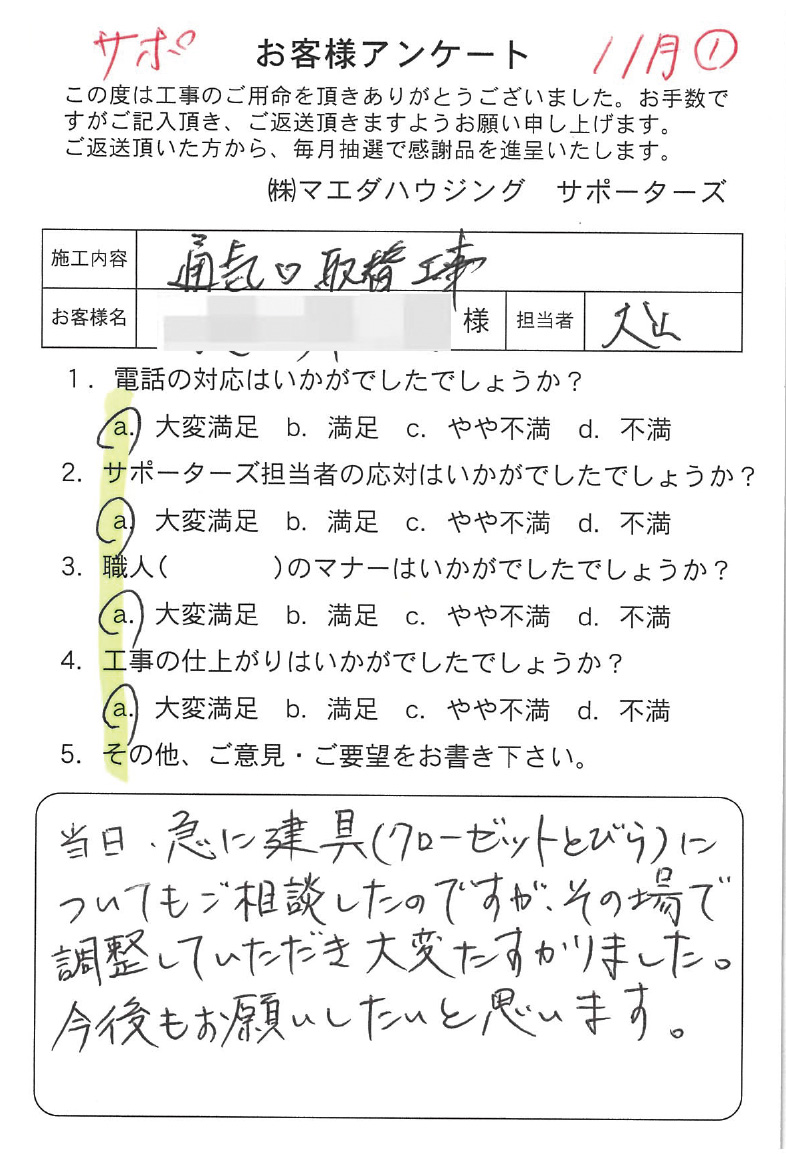 サポ お客様アンケート 11月①
この度は工事のご用命を頂きありがとうございました。お手数で
すがご記入頂き、ご返送頂きますようお願い申し上げます。
ご返送頂いた方から、毎月抽選で感謝品を進呈いたします。
㈱マエダハウジング サポーターズ
施工内容 通気口取替工事
お客様名 様 担当者 大山
1. 電話の対応はいかがでしたでしょうか?
a. 大変満足 b. 満足 c. やや不満 d. 不満
2. サポーターズ担当者の応対はいかがでしたでしょうか?
a. 大変満足 b. 満足 c. やや不満 d. 不満
3. 職人( )のマナーはいかがでしたでしょうか?
a. 大変満足 b. 満足 c. やや不満 d. 不満
4. 工事の仕上がりはいかがでしたでしょうか?
a. 大変満足 b. 満足 c. やや不満 d. 不満
5. その他、ご意見・ご要望をお書き下さい。
当日、急に建具(クローゼットとびら)に
ついてもご相談したのですが、その場で
調整していただき大変たすかりました。
今後もお願いしたいと思います。